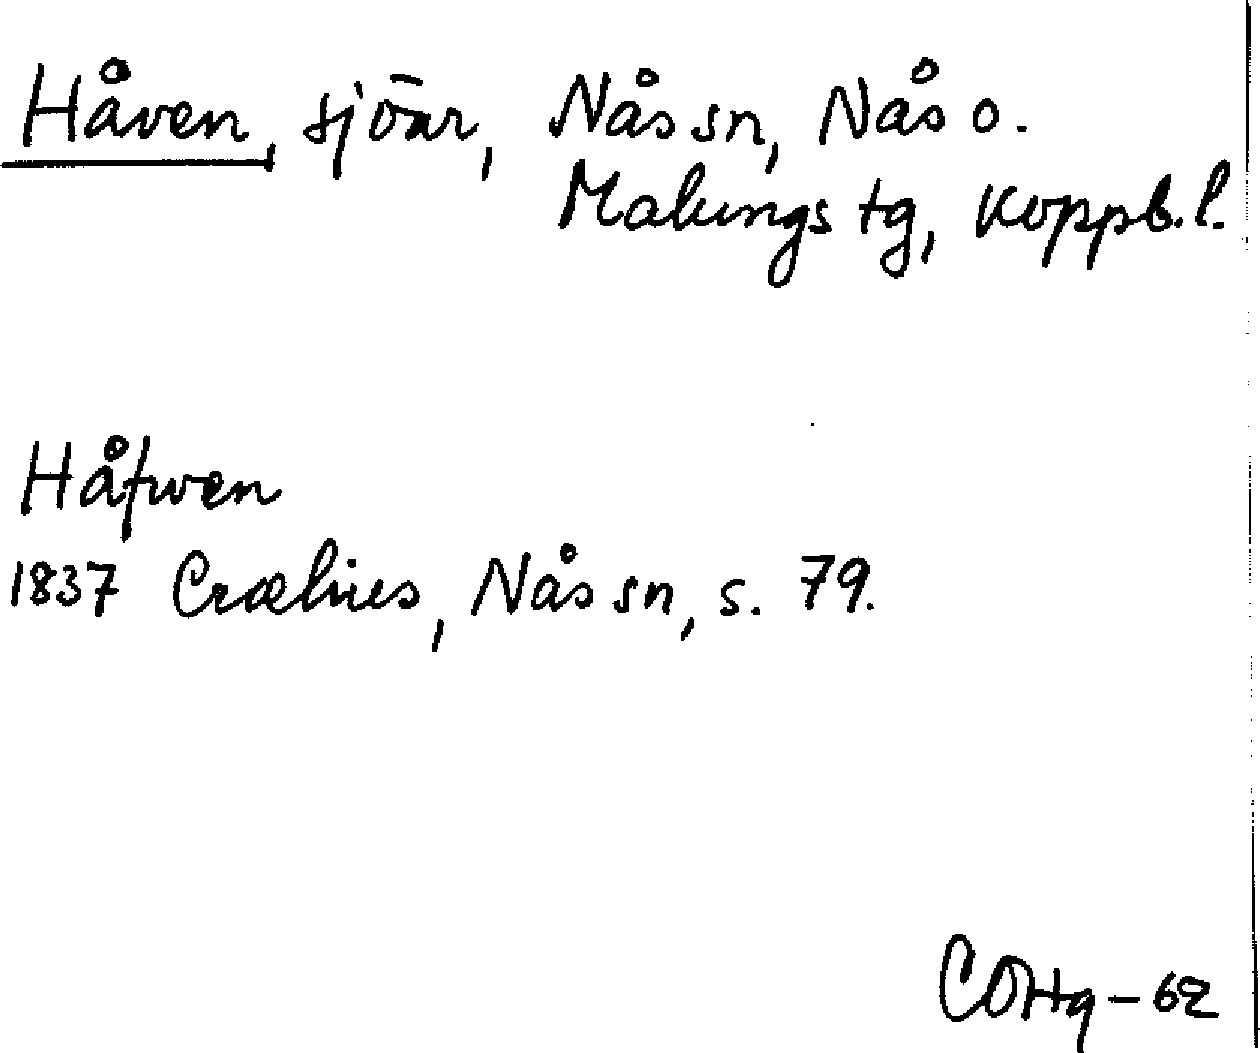 Håven, sjöar, Nås sn, Nås o.
Malungs tg, Koppb. l.
Håfwen
1837 Crælius, Nås sn, s. 79.
COHq-62